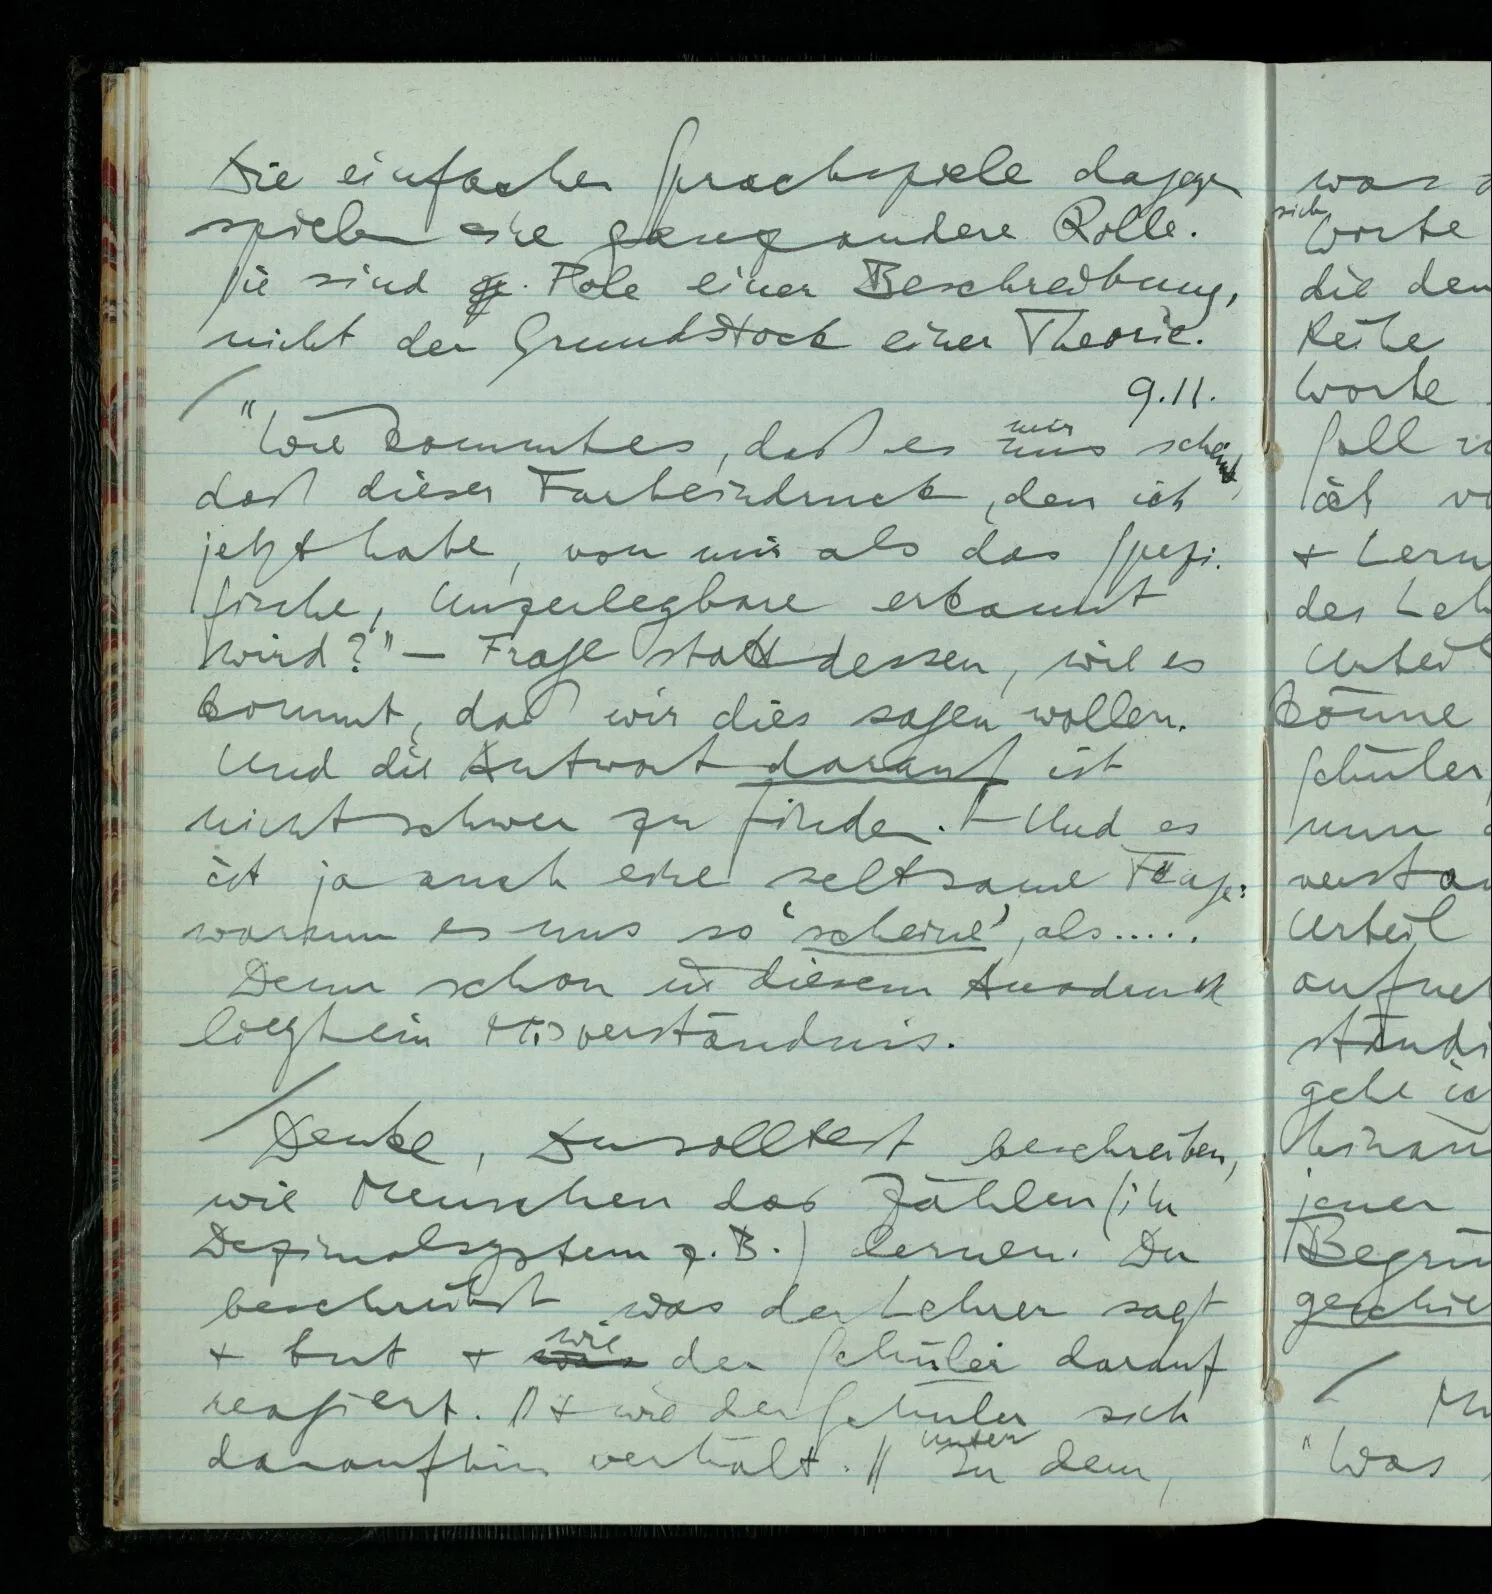 Die einfachen Sprachspiele dagegen
spielen eine ganz andere Rolle.
Sie sind Pole einer Beschreibung,
nicht der Grundstock einer Theorie.
9.11.
"Wie kommt es, daß es mir uns scheint,
daß dieser Farbeindruck, den ich
jetzt habe, von mir als das Spezi-
fische, Unzerlegbare erkannt
wird?" – Frage statt dessen, wie es
kommt, daß wir dies sagen wollen.
Und die Antwort darauf ist
nicht schwer zu finden. – Und es
ist ja auch eine seltsame Frage:
warum es uns so 'scheine', als.....
Denn schon in diesem Ausdruck
liegt ein Misverständnis.
Denke, Du solltest beschreiben,
wie Menschen das Zählen (im
Dezimalsystem z.B.) lernen. Du
beschreibst was der Lehrer sagt
+ tut + was wie der Schüler darauf
reagiert. // + wie der Schüler sich
daraufhin verhält. // In unter dem,
was
sich
Worte
die den
Reihe
Worte
soll
ich
+ Lern
des Leh
Urteil
könne
Schüler
nun
verstan
Urteil
aufneh
ständi
gehe ic
hinaus
jener
Begrün
geschie
"Was